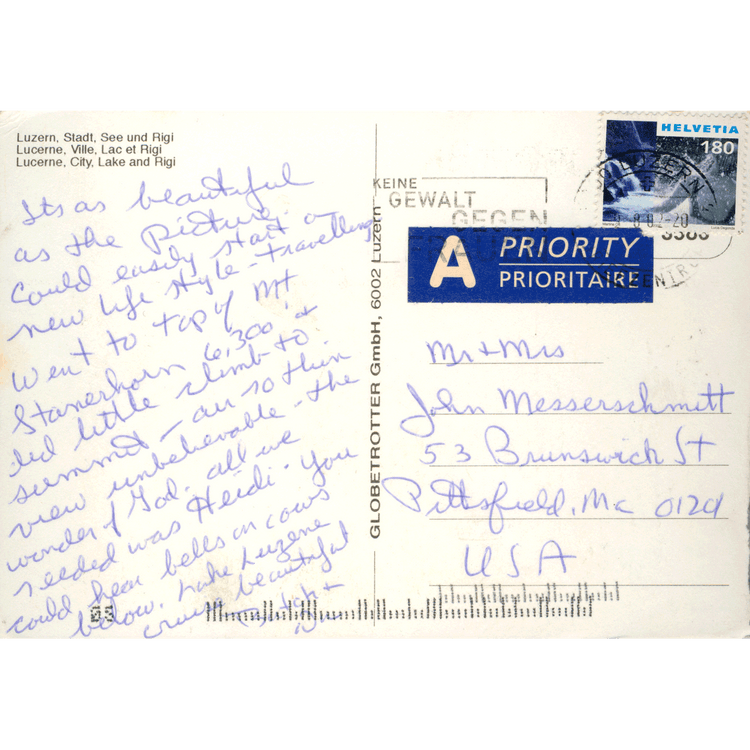 Luzern, Stadt, See und Rigi
Lucerne, Ville, Lac et Rigi
Lucerne, City, Lake and Rigi
Its as beautiful
as the picture.
Could easily start a
new life style - travelling
Went to top of Mt
Stanerhorn 6,300 &
did little climb to
summit - air so thin
view unbelievable - the
wonder of God. all we
needed was Heidi. You
could hear bells on cows
below. Lake Luzene
cruise beautiful
GLOBETROTTER GmbH, 6002 Luzern
KEINE
GEWALT
GEGEN
FRAUEN
HELVETIA
180
LUZERN
A PRIORITY
PRIORITAIRE
Mr + Mrs
John Messerschmitt
53 Brunswick St
Pittsfield, Ma 01201
USA